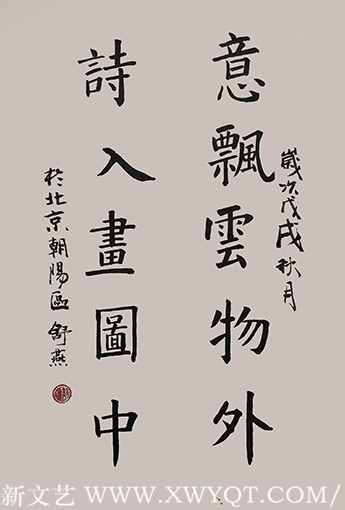 歲次戊戌秋月
意飄雲物外
詩入畫圖中
於北京朝陽區 舒燕
新文艺 WWW.XWYQT.COM/